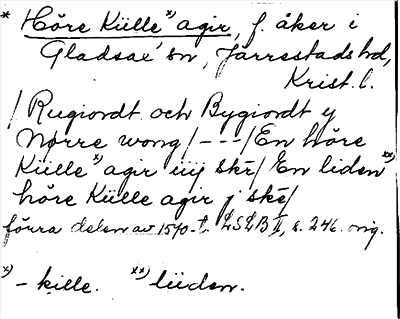 * Höre Külle x) agir, f. åker i
Gladsax' sn, Järrestads hd,
Krist. l.
/ Rugiordt och Bygiordt y
Nørre wong / --- / En höre
Külle x) agir iiij skr̄ / En liden xx)
höre Külle agir j skē /
förra delen av 1590-t. LSLB II, s. 246. orig.
x) - kille. xx) lüden.